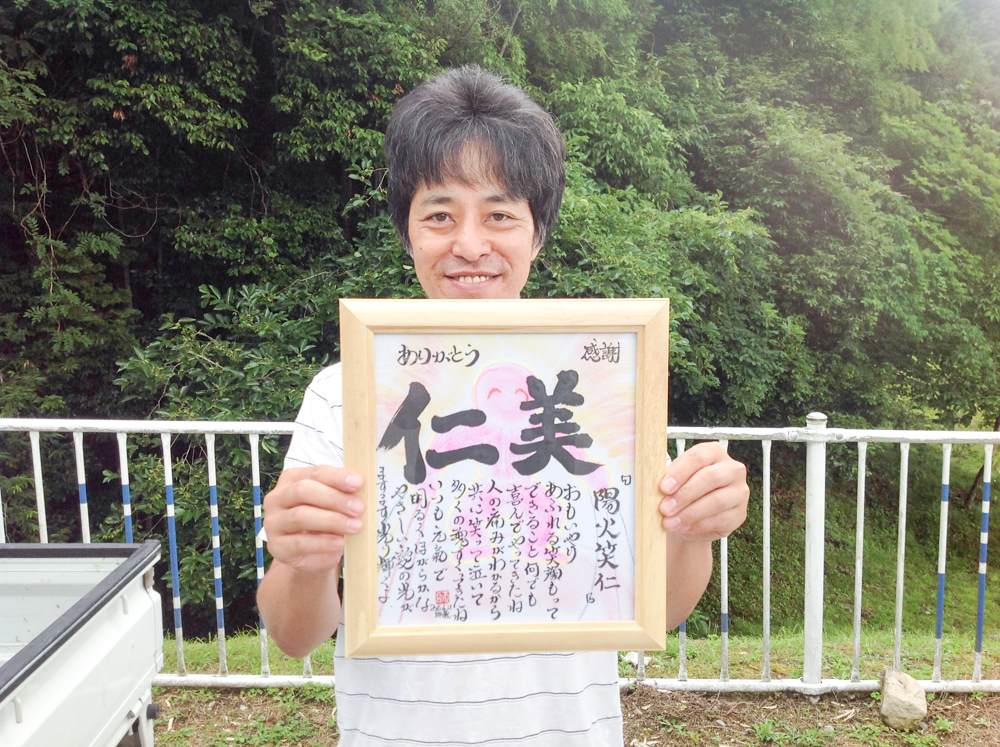 ありがとう 感謝
仁美
「陽火笑仁」
おもいやり
あふれる笑顔もって
できること何でも
喜んでやってきたね
人の痛みがわかるから
共に笑って泣いて
多くの魂すくってきたね
いつも元氣で
明るくほがらかな
やさしい魂の光が
ますます光り輝くよ